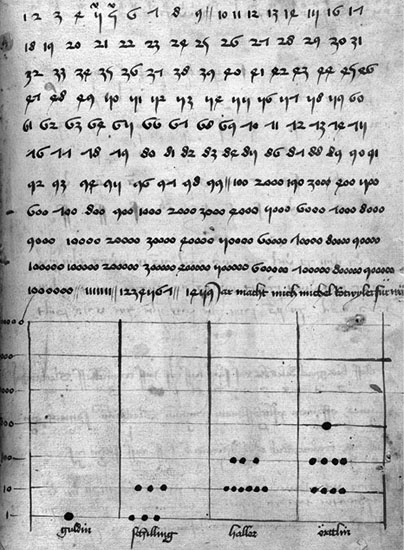 1 2 3 4 5 6 7 8 9 10 11 12 13 14 15 16 17
18 19 20 21 22 23 24 25 26 27 28 29 30 31
32 33 34 35 36 37 38 39 40 41 42 43 44 45 46
47 48 49 50 51 52 53 54 55 56 57 58 59 60
61 62 63 64 65 66 67 68 69 70 71 72 73 74 75
76 77 78 79 80 81 82 83 84 85 86 87 88 89 90 91
92 93 94 95 96 97 98 99 100
600 700 800 900 1000 2000 3000 4000 5000 6000 7000 8000
9000 10000 20000 30000 40000 50000 60000 70000 80000 90000
100000 200000 300000 400000 500000 600000 700000 800000 900000
1000000 1234567 jar macht mich michel für
guldin schilling haller örttlin